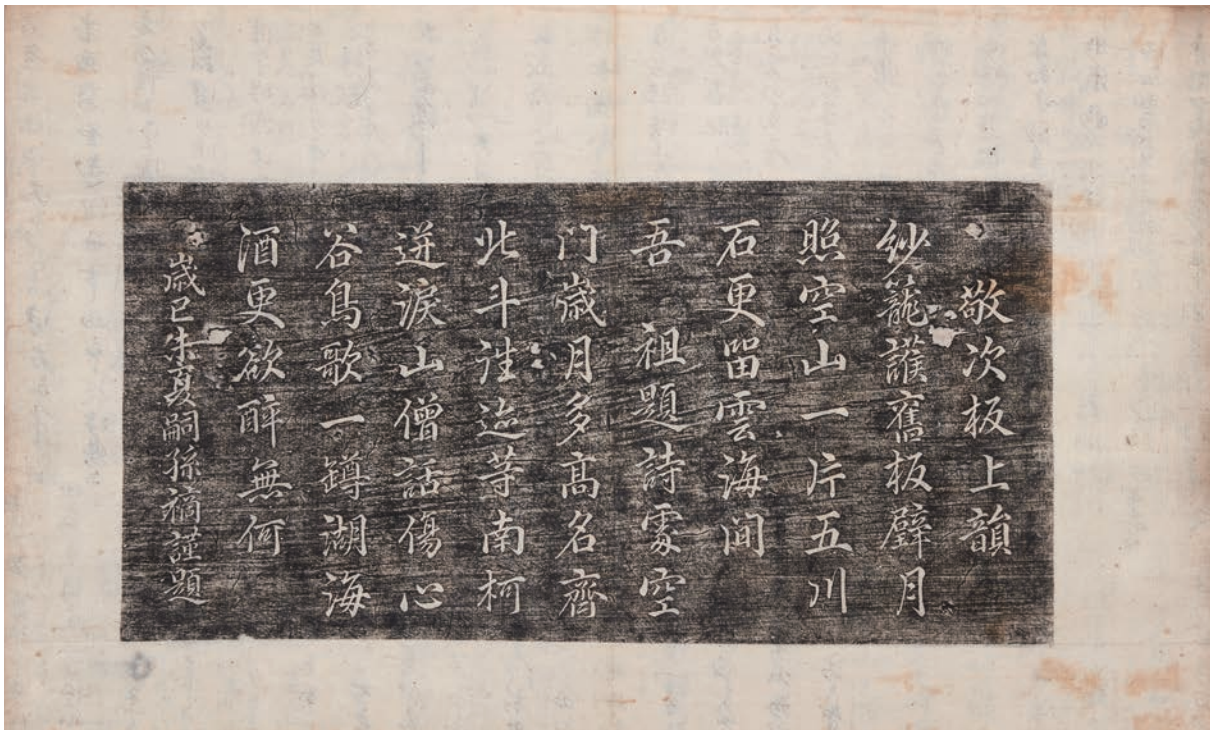 敬次板上韻
紗籠護舊板璧月
照空山一片五川
石更留雲海间
吾 祖題詩處空
门歲月多高名齊
北斗往迹等南柯
迸淚山僧話傷心
谷鳥歌一罇湖海
酒更欲醉無何
歲己未夏嗣孫謹題